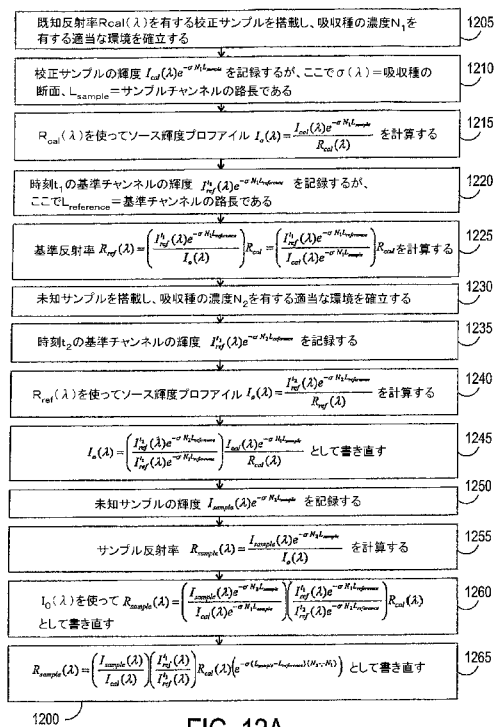 既知反射率Rcal(λ)を有する校正サンプルを搭載し、吸収種の濃度N₁を
有する適当な環境を確立する
1205
校正サンプルの輝度 I_{cal}(λ)e^{-σ N₁L_{sample}} を記録するが、ここでσ(λ)=吸収種の
断面、L_{sample}=サンプルチャンネルの路長である
1210
R_{cal}(λ)を使ってソース輝度プロファイル I_o(λ)=\frac{I_{cal}(λ)e^{-σ N₁L_{sample}}}{R_{cal}(λ)} を計算する
1215
時刻t₁の基準チャンネルの輝度 I_{ref}^{t₁}(λ)e^{-σ N₁L_{reference}} を記録するが、
ここでL_{reference}=基準チャンネルの路長である
1220
基準反射率 R_{ref}(λ)=\left(\frac{I_{ref}^{t₁}(λ)e^{-σ N₁L_{reference}}}{I_o(λ)}\right)R_{cal}=\left(\frac{I_{ref}^{t₁}(λ)e^{-σ N₁L_{reference}}}{I_{cal}(λ)e^{-σ N₁L_{sample}}}\right)R_{cal}を計算する
1225
未知サンプルを搭載し、吸収種の濃度N₂を有する適当な環境を確立する
1230
時刻t₂の基準チャンネルの輝度 I_{ref}^{t₂}(λ)e^{-σ N₂L_{reference}} を記録する
1235
R_{ref}(λ)を使ってソース輝度プロファイル I_o(λ)=\frac{I_{ref}^{t₂}(λ)e^{-σ N₂L_{reference}}}{R_{ref}(λ)} を計算する
1240
として書き直す
1245
未知サンプルの輝度 I_{sample}(λ)e^{-σ N₂L_{sample}} を記録する
1250
サンプル反射率 R_{sample}(λ)=\frac{I_{sample}(λ)e^{-σ N₂L_{sample}}}{I_o(λ)} を計算する
1255
I₀(λ)を使って R_{sample}(λ)=\left(\frac{I_{sample}(λ)e^{-σ N₂L_{sample}}}{I_{cal}(λ)e^{-σ N₁L_{sample}}}\right)\left(\frac{I_{ref}^{t₁}(λ)e^{-σ N₁L_{reference}}}{I_{ref}^{t₂}(λ)e^{-σ N₂L_{reference}}}\right)R_{cal}(λ)
として書き直す
1260
R_{sample}(λ)=\left(\frac{I_{sample}(λ)}{I_{cal}(λ)}\right)\left(\frac{I_{ref}^{t₁}(λ)}{I_{ref}^{t₂}(λ)}\right)R_{cal}(λ)\left(e^{-σ(L_{sample}-L_{reference})(N₂-N₁)}\right) として書き直す
1265
1200
FIG. 12A